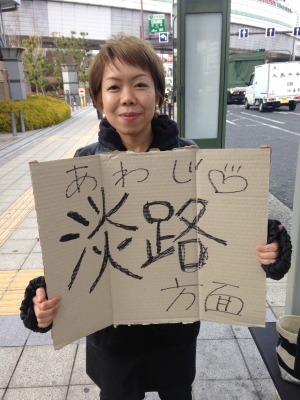 あわじ♡
淡路
方面